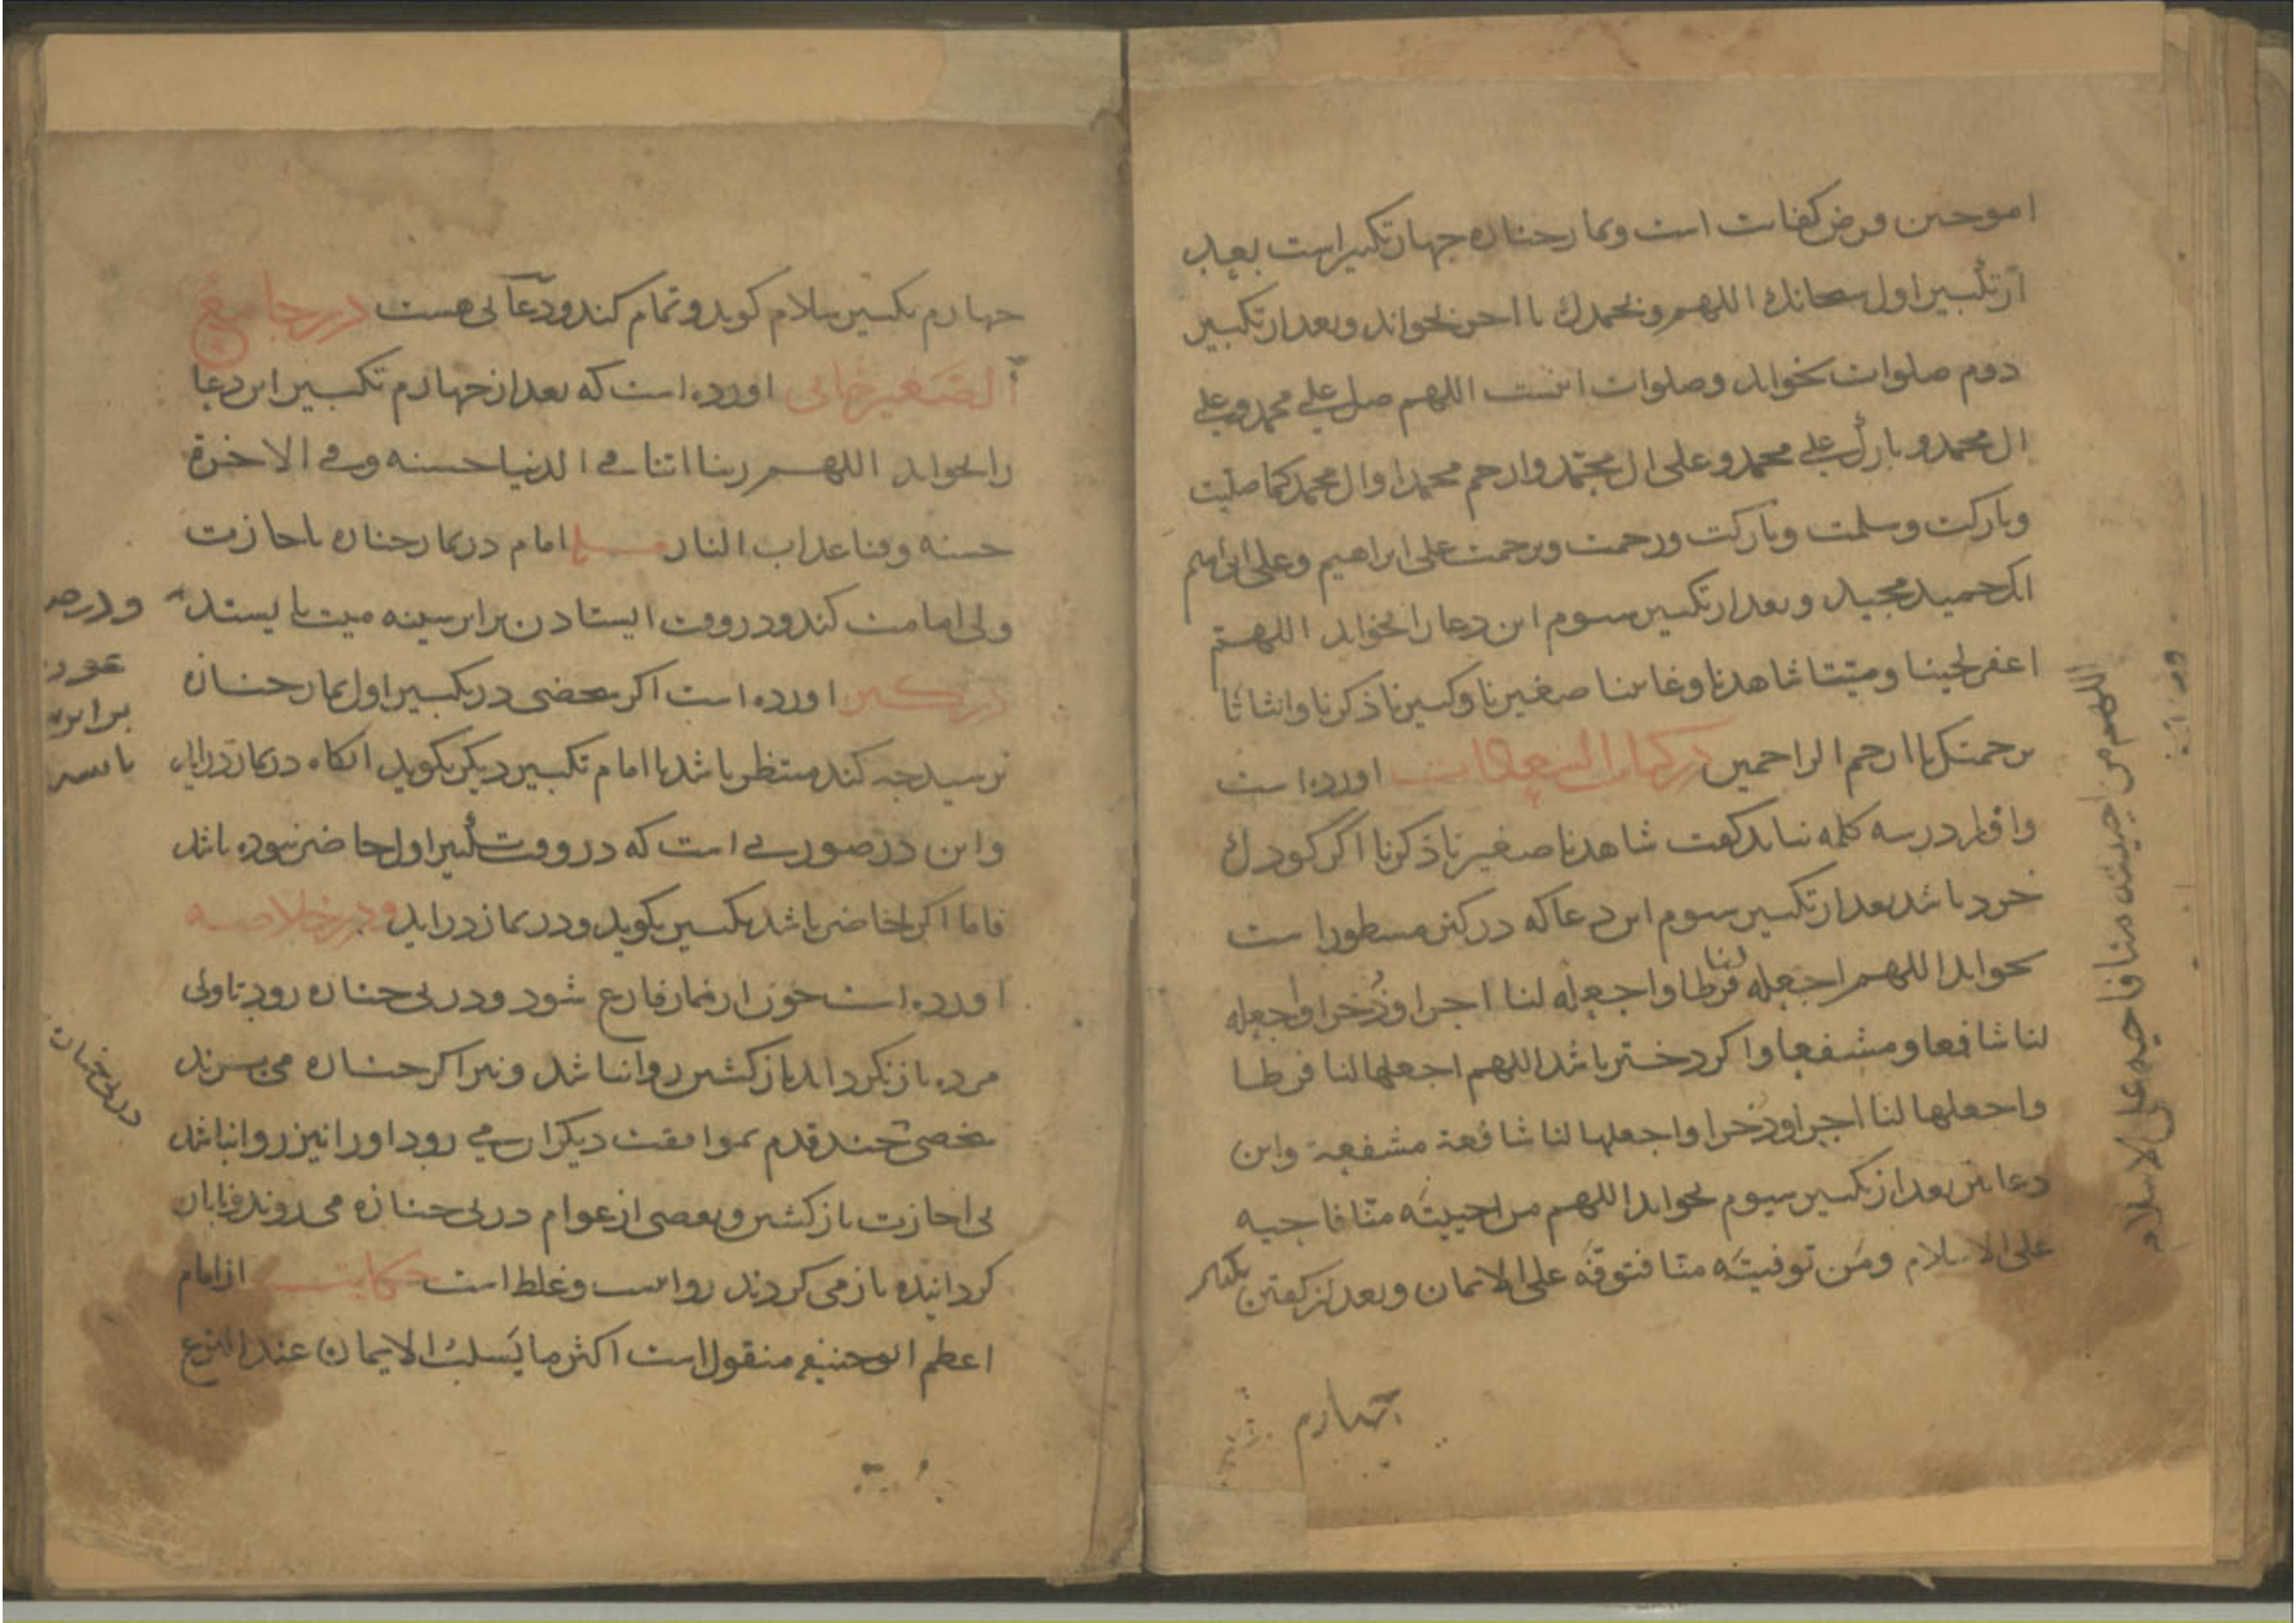 اموحىن فرض كفایت است ونماز جنازه چهار تكبیر است بعد
از تكبیر اول سبحانك اللهم وبحمدك تا اخر بخواند وبعد از تكبیر
دوم صلوات بخواند وصلوات اینست اللهم صل علی محمد وعلی
ال محمد وبارك علی محمد وعلی ال محمد وارحم محمدا وال محمد كما صلیت
وباركت وسلمت وباركت ورحمت وترحمت علی ابراهیم وعلی ال ابراهیم
انك حمید مجید وبعد از تكبیر سوم این دعا را بخواند اللهم
اغفر لحینا ومیتنا شاهدنا وغائبنا صغیرنا وكبیرنا ذكرنا وانثانا
برحمتك یا ارحم الراحمین در كتاب اورده است
در سه كلمه نباید گفت شاهدنا صغیرنا ذكرنا اگر كودك
خرد باشد بعد از تكبیر سوم این دعا كه در كنز مسطور است
بخواند اللهم اجعله لنا فرطا واجعله لنا اجرا وذخرا واجعله
لنا شافعا ومشفعا واگر دختر باشد اللهم اجعلها لنا فرطا
واجعلها لنا اجرا وذخرا واجعلها لنا شافعة مشفعة واین
دعا نیز بعد از تكبیر سیوم بخواند اللهم من احییته منا فاحیه
علی الاسلام ومن توفیته منا فتوفه علی الایمان وبعد از گفتن تكبیر
چهارم
اللهم من احییته منا فاحیه علی الاسلام
چهارم تكبیر سلام گوید وتمام كند ودعائی هست در جامع
الصغیر خانی اورده است كه بعد از چهارم تكبیر این دعا
را بخواند اللهم ربنا اتنا فی الدنیا حسنه وفی الاخرة
حسنه وقنا عذاب النار امام در نماز جنازه باجازت
ولی امامت كند ودر وقت ایستادن برابر سینه میت بایستد
در كنز اورده است اگر شخصی در تكبیر اول نماز جنازه
نرسید چه كند منتظر باشد تا امام تكبیر دیگر بگوید انگاه در نماز دراید
واین در صورتی است كه در وقت تكبیر اول حاضر نبوده باشد
فاما اگر حاضر باشد تكبیر بگوید ودر نماز دراید ودر خلاصه
اورده است چون از نماز فارغ شود ودر پی جنازه رود تا ولی
مرده باز نگرداند بازگشتن روا نباشد ونیز اگر جنازه می برند
شخصی چند قدم بموافقت دیگران می رود او را نیز روا نباشد
بی اجازت بازگشتن وبعضی از عوام در پی جنازه می روند
گردانیده باز می گردند روا نیست وغلط است حكایت از امام
اعظم ابوحنیفه منقول است اكثر ما یسلب الایمان عند النزع
ودر
عورت
برابر
با سر
در پی جنازه